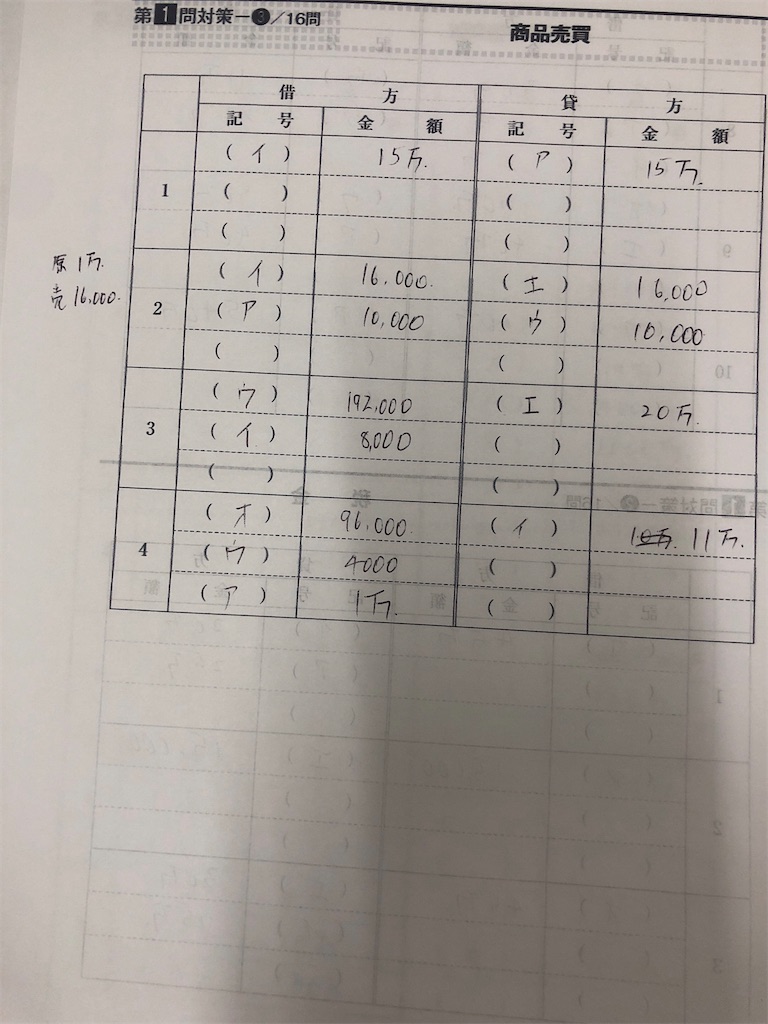 第1問対策-❸/16問
商品売買
借 方 貸 方
記 号 金 額 記 号 金 額
1 (イ) 15万. (ア) 15万.
( ) ( )
( ) ( )
原 1万.
売 16,000.
2 (イ) 16,000. (エ) 16,000
(ア) 10,000 (ウ) 10,000
( ) ( )
3 (ウ) 192,000 (エ) 20万.
(イ) 8,000 ( )
( ) ( )
4 (オ) 96,000. (イ) 10万. 11万.
(ウ) 4000 ( )
(ア) 1万. ( )